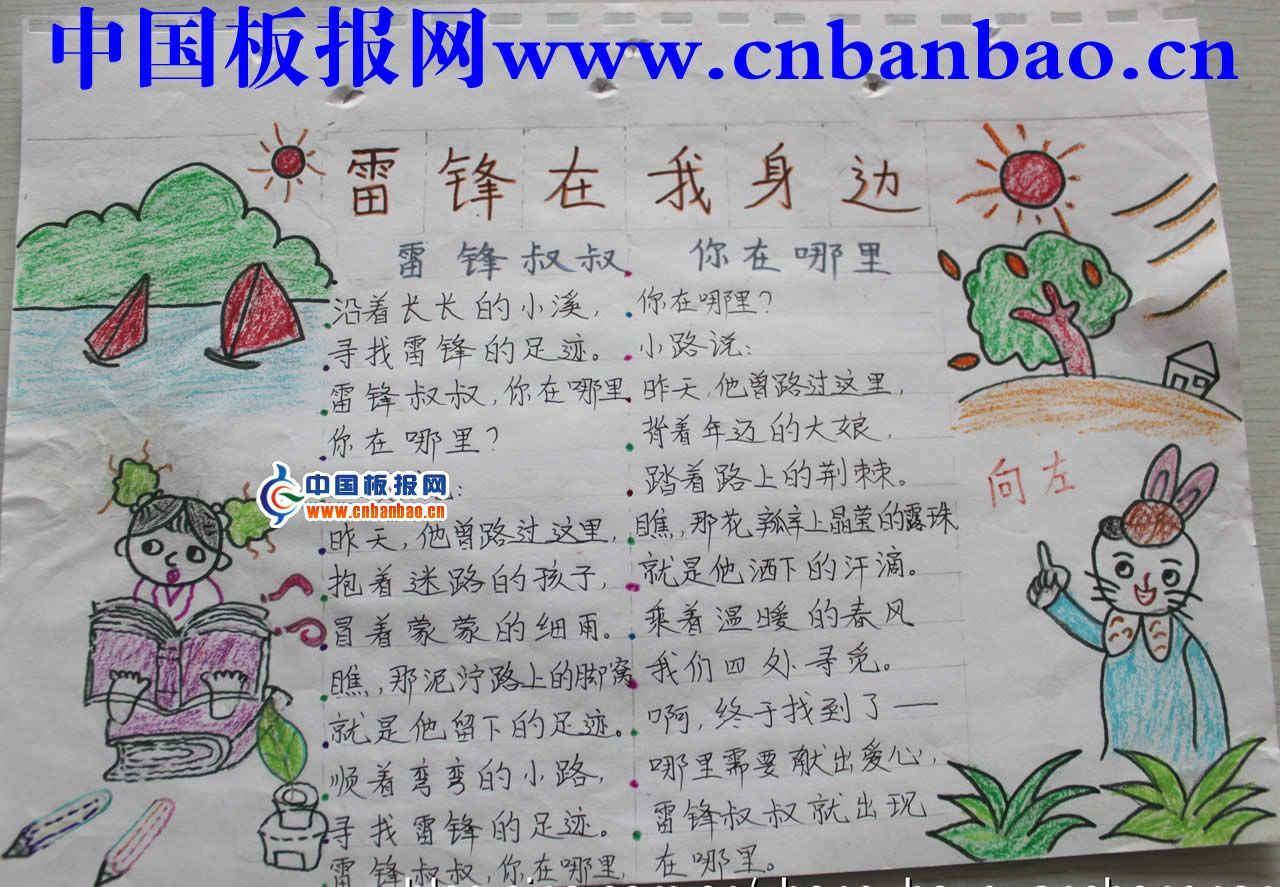 中国板报网www.cnbanbao.cn
雷锋在我身边
雷锋叔叔 你在哪里
沿着长长的小溪，
寻找雷锋的足迹。
雷锋叔叔，你在哪里
你在哪里？
中国板报网
www.cnbanbao.cn
昨天，他曾路过这里，
抱着迷路的孩子，
冒着蒙蒙的细雨。
瞧，那泥泞路上的脚窝
就是他留下的足迹。
顺着弯弯的小路，
寻找雷锋的足迹。
雷锋叔叔，你在哪里，
你在哪里？
小路说：
昨天，他曾路过这里，
背着年迈的大娘，
踏着路上的荆棘。
瞧，那花瓣上晶莹的露珠
就是他洒下的汗滴。
乘着温暖的春风
我们四处寻觅。
啊，终于找到了——
哪里需要献出爱心，
雷锋叔叔就出现
在哪里。
向左